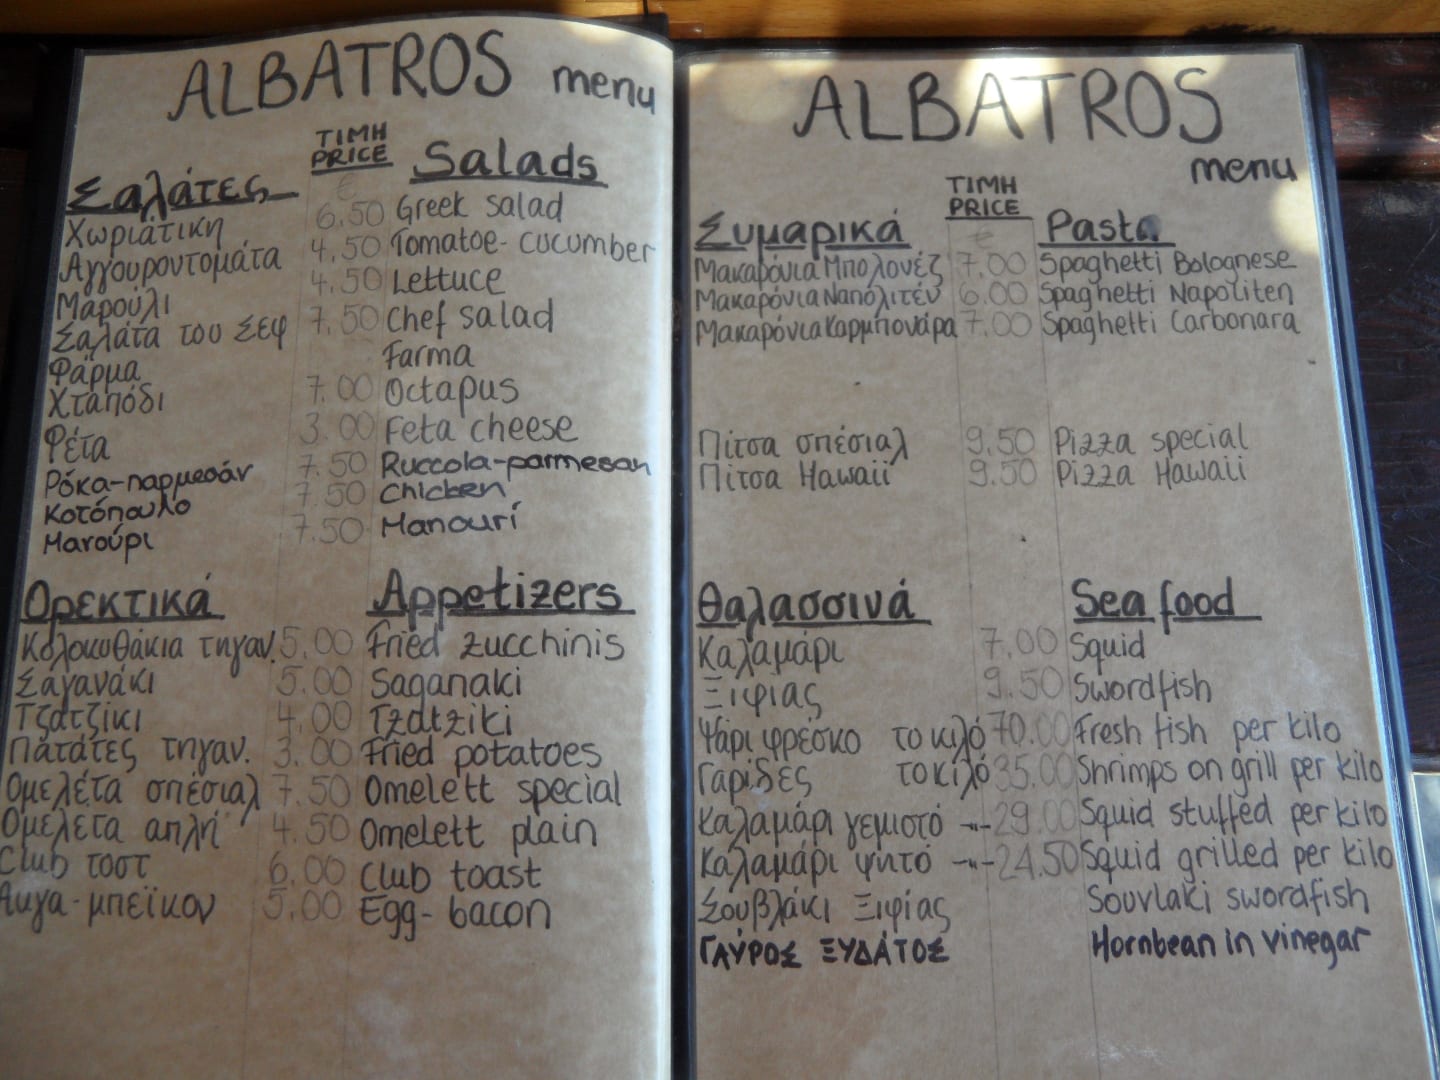 ALBATROS menu
ΤΙΜΗ
PRICE
Σαλάτες Salads
€
Χωριάτικη 6.50 Greek salad
Αγγουροντομάτα 4.50 Tomatoe-cucumber
Μαρούλι 4.50 Lettuce
Σαλάτα του Σεφ 7.50 Chef salad
Φάρμα Farma
Χταπόδι 7.00 Octapus
Φέτα 3.00 Feta cheese
Ρόκα-παρμεσάν 7.50 Ruccola-parmesan
Κοτόπουλο 7.50 Chicken
Μανούρι 7.50 Manourí
Ορεκτικά Appetizers
Κολοκυθάκια τηγαν. 5.00 Fried zucchinis
Σαγανάκι 5.00 Saganaki
Τζατζίκι 4.00 Tzatziki
Πατάτες τηγαν. 3.00 Fried potatoes
Ομελέτα σπέσιαλ 7.50 Omelett special
Ομελέτα απλή 4.50 Omelett plain
Club τοστ 6.00 Club toast
Αυγα-μπεϊκον 5.00 Egg-bacon
ALBATROS
menu
ΤΙΜΗ
PRICE
Ζυμαρικά Pasta
€
Μακαρόνια Μπολονέζ 7.00 Spaghetti Bolognese
Μακαρόνια Ναπολιτέν 6.00 Spaghetti Napoliten
Μακαρόνια Καρμπονάρα 7.00 Spaghetti Carbonara
Πίτσα σπέσιαλ 9.50 Pizza special
Πίτσα Hawaii 9.50 Pizza Hawaii
Θαλασσινά Sea food
Καλαμάρι 7.00 Squid
Ξιφίας 9.50 Swordfish
Ψάρι φρέσκο το κιλό 70.00 Fresh fish per kilo
Γαρίδες το κιλό 35.00 Shrimps on grill per kilo
Καλαμάρι γεμιστό -"- 29.00 Squid stuffed per kilo
Καλαμάρι ψητό -"- 24.50 Squid grilled per kilo
Σουβλάκι Ξιφίας Souvlaki swordfish
ΓΑΥΡΟΣ ΞΥΔΑΤΟΣ Hornbean in vinegar